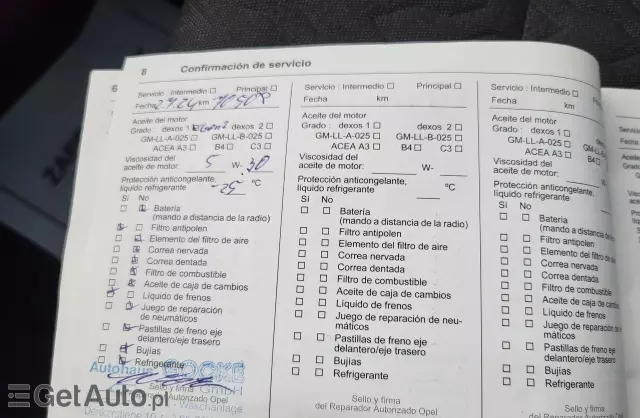 8
Confirmación de servicio
Servicio: Intermedio Principal
Fecha 2.9.24 km
Aceite del motor
Grado: dexos 1 dexos 2
GM-LL-A-025 GM-LL-B-025
ACEA A3 B4 C3
Viscosidad del
aceite de motor: 5 W- 30
Protección anticongelante,
líquido refrigerante -25 °C
Sí No
Batería
(mando a distancia de la radio)
Filtro antipolen
Elemento del filtro de aire
Correa nervada
Correa dentada
Filtro de combustible
Aceite de caja de cambios
Líquido de frenos
Juego de reparación
de neumáticos
Pastillas de freno eje
delantero/eje trasero
Bujías
Refrigerante
Autohaus COOKE
GmbH
Sello y firma
Autorizado Opel
Waschanlage
Servicio: Intermedio Principal
Fecha km
Aceite del motor
Grado: dexos 1 dexos 2
GM-LL-A-025 GM-LL-B-025
ACEA A3 B4 C3
Viscosidad del
aceite de motor: W-
Protección anticongelante,
líquido refrigerante °C
Sí No
Batería
(mando a distancia de la radio)
Filtro antipolen
Elemento del filtro de aire
Correa nervada
Correa dentada
Filtro de combustible
Aceite de caja de cambios
Líquido de frenos
Juego de reparación de neu-
máticos
Pastillas de freno eje
delantero/eje trasero
Bujías
Refrigerante
Sello y firma
del Reparador Autorizado Opel
Servicio: Intermedio
Fecha km
Aceite del motor
Grado: dexos 1
GM-LL-A-025
ACEA A3 B4
Viscosidad del
aceite de motor:
Protección anticongelante,
líquido refrigerante
Sí No
Batería
(mando a distancia
Filtro antipolen
Elemento del filtro
Correa nervada
Correa dentada
Filtro de combustible
Aceite de caja de cam
Líquido de frenos
Juego de reparación
máticos
Pastillas de freno eje
delantero/eje trasero
Bujías
Refrigerante
Sello y firma
del Reparador Autorizado
GetAuto.pl